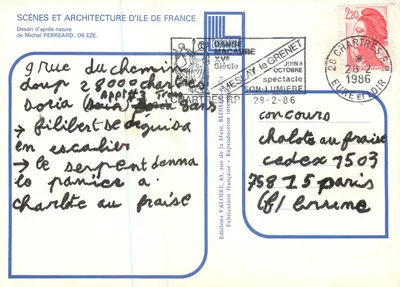 SCÈNES ET ARCHITECTURE D'ILE DE FRANCE
Dessin d'après nature
de Michel PERREARD. O6 EZE.
9 rue du chemin
doup 28000 chartres
appt 3
doria
→ filibert se déguisa
en escalier
→ le serpent donna
le panier à
charlote au fraise
DANSE
MACABRE
XVe
Siècle
MESLAY le GRENET
JUIN À
OCTOBRE
spectacle
SON-LUMIÈRE
CHARTRES R.P
28-2-86
2,20
28 CHARTRES R.P
28-2
1986
EURE ET LOIR
concours
chalote au fraise
cedex 1503
75815 paris
Editions VALOIRE, 63, rue de la Mare, BLOIS
Fabrication française - Reproduction interdite